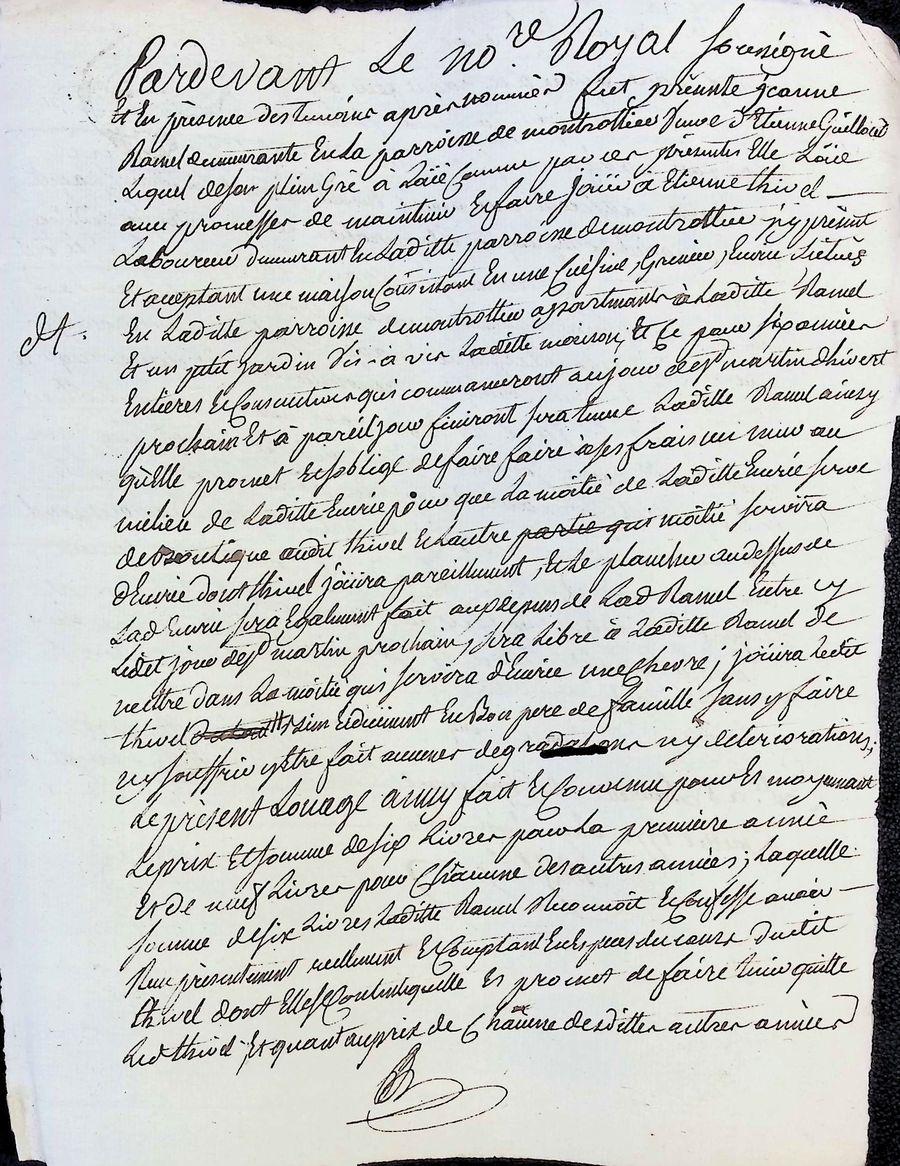 Pardevant Le no.re Royal soussigné
Et En présence des temoins après nommés fut présente jeanne
Ramel demeurante En La parroisse de montrottier veuve d'Etienne Guilloud
Lequel de son plein Gré à Laïé Comme par ces présentes Elle Laïe
avec promesses de maintenir Et faire joüir à Etienne thivel
Laboureur demeurant En Laditte parroisse de montrottier icy présent
Et aceptant une maison Consistant En une Cuésine, Grenier, Ecurie scituès
En Laditte parroisse de montrottier appartenants à Laditte Ramel
Et un petit jardin vis-à vis Laditte maison, Et Ce pour six années
Entières Et Consecutives qui commanceront au jour de st martin d'hivert
prochain Et à pareil jour finiront sera tenue Laditte Ramel ainsy
qu'Elle promet Et s'oblige de faire faire à ses frais un mur au
milieu de Laditte Ecurie pour que La moitié de Laditte Ecurie serve
de Boutique audit thivel Et L'autre partie qui moitié servira
d'Ecurie dont thivel joüira pareillement, Et Le plancher au dessus de
Lad Ecurie sera Egalement fait aux depens de Lad Ramel Entre cy
Ledit jour de st martin prochain, sera Libre à Laditte Ramel de
mettre dans La moitié qui servira d'Ecurie une chevre; joüira Ledit
thivel En Bon pere de famille sans y faire
ny souffrir y Etre fait aucunes degradations ny deteriorations;
Le présent Loüage ainsy fait Et Convenu pour Et moyenant
Le prix Et somme de six Livres pour La première année
Et de neuf Livres pour Chacune des autres années; Laquelle
somme de six Livres Laditte Ramel Reconnoit Et Confesse avoir
Reçu présentement reellement Et Comptant En Especes du cours Dudit
thivel dont Elle se Contente quitte Et promet de faire tenir quitte
Led thivel Et quant au prix de Chacune desdittes autres années